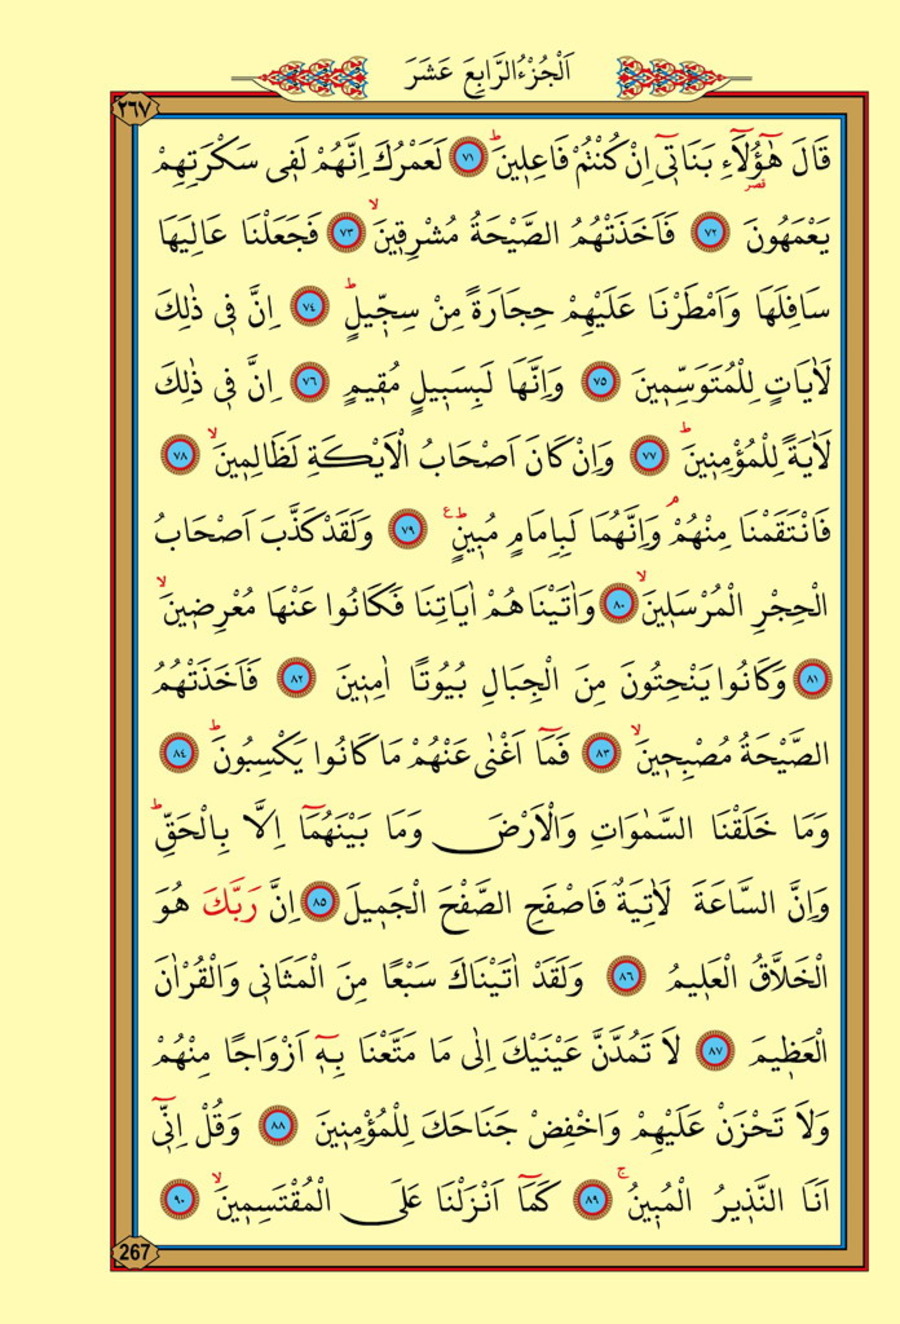 اَلْجُزْءُ الرَّابِعَ عَشَرَ
٢٦٧
قَالَ هٰٓؤُ۬لَٓاءِ بَنَاتٖٓي اِنْ كُنْتُمْ فَاعِلٖينَۜ ﴿٧١﴾ لَعَمْرُكَ اِنَّهُمْ لَفٖي سَكْرَتِهِمْ
قصر
يَعْمَهُونَ ﴿٧٢﴾ فَاَخَذَتْهُمُ الصَّيْحَةُ مُشْرِقٖينَۙ ﴿٧٣﴾ فَجَعَلْنَا عَالِيَهَا
سَافِلَهَا وَاَمْطَرْنَا عَلَيْهِمْ حِجَارَةً مِنْ سِجّٖيلٍۜ ﴿٧٤﴾ اِنَّ فٖي ذٰلِكَ
لَاٰيَاتٍ لِلْمُتَوَسِّمٖينَ ﴿٧٥﴾ وَاِنَّهَا لَبِسَبٖيلٍ مُقٖيمٍ ﴿٧٦﴾ اِنَّ فٖي ذٰلِكَ
لَاٰيَةً لِلْمُؤْمِنٖينَۜ ﴿٧٧﴾ وَاِنْ كَانَ اَصْحَابُ الْاَيْكَةِ لَظَالِمٖينَۙ ﴿٧٨﴾
فَانْتَقَمْنَا مِنْهُمْۢ وَاِنَّهُمَا لَبِاِمَامٍ مُبٖينٍۜ ع ﴿٧٩﴾ وَلَقَدْ كَذَّبَ اَصْحَابُ
الْحِجْرِ الْمُرْسَلٖينَۙ ﴿٨٠﴾ وَاٰتَيْنَاهُمْ اٰيَاتِنَا فَكَانُوا عَنْهَا مُعْرِضٖينَۙ
﴿٨١﴾ وَكَانُوا يَنْحِتُونَ مِنَ الْجِبَالِ بُيُوتًا اٰمِنٖينَ ﴿٨٢﴾ فَاَخَذَتْهُمُ
الصَّيْحَةُ مُصْبِحٖينَۙ ﴿٨٣﴾ فَمَٓا اَغْنٰى عَنْهُمْ مَا كَانُوا يَكْسِبُونَۜ ﴿٨٤﴾
وَمَا خَلَقْنَا السَّمٰوَاتِ وَالْاَرْضَ وَمَا بَيْنَهُمَٓا اِلَّا بِالْحَقِّۜ
وَاِنَّ السَّاعَةَ لَاٰتِيَةٌ فَاصْفَحِ الصَّفْحَ الْجَمٖيلَ ﴿٨٥﴾ اِنَّ رَبَّكَ هُوَ
الْخَلَّاقُ الْعَلٖيمُ ﴿٨٦﴾ وَلَقَدْ اٰتَيْنَاكَ سَبْعًا مِنَ الْمَثَانٖي وَالْقُرْاٰنَ
الْعَظٖيمَ ﴿٨٧﴾ لَا تَمُدَّنَّ عَيْنَيْكَ اِلٰى مَا مَتَّعْنَا بِهٖٓ اَزْوَاجًا مِنْهُمْ
وَلَا تَحْزَنْ عَلَيْهِمْ وَاخْفِضْ جَنَاحَكَ لِلْمُؤْمِنٖينَ ﴿٨٨﴾ وَقُلْ اِنّٖٓي
اَنَا النَّذٖيرُ الْمُبٖينُۚ ﴿٨٩﴾ كَمَٓا اَنْزَلْنَا عَلَى الْمُقْتَسِمٖينَۙ ﴿٩٠﴾
267